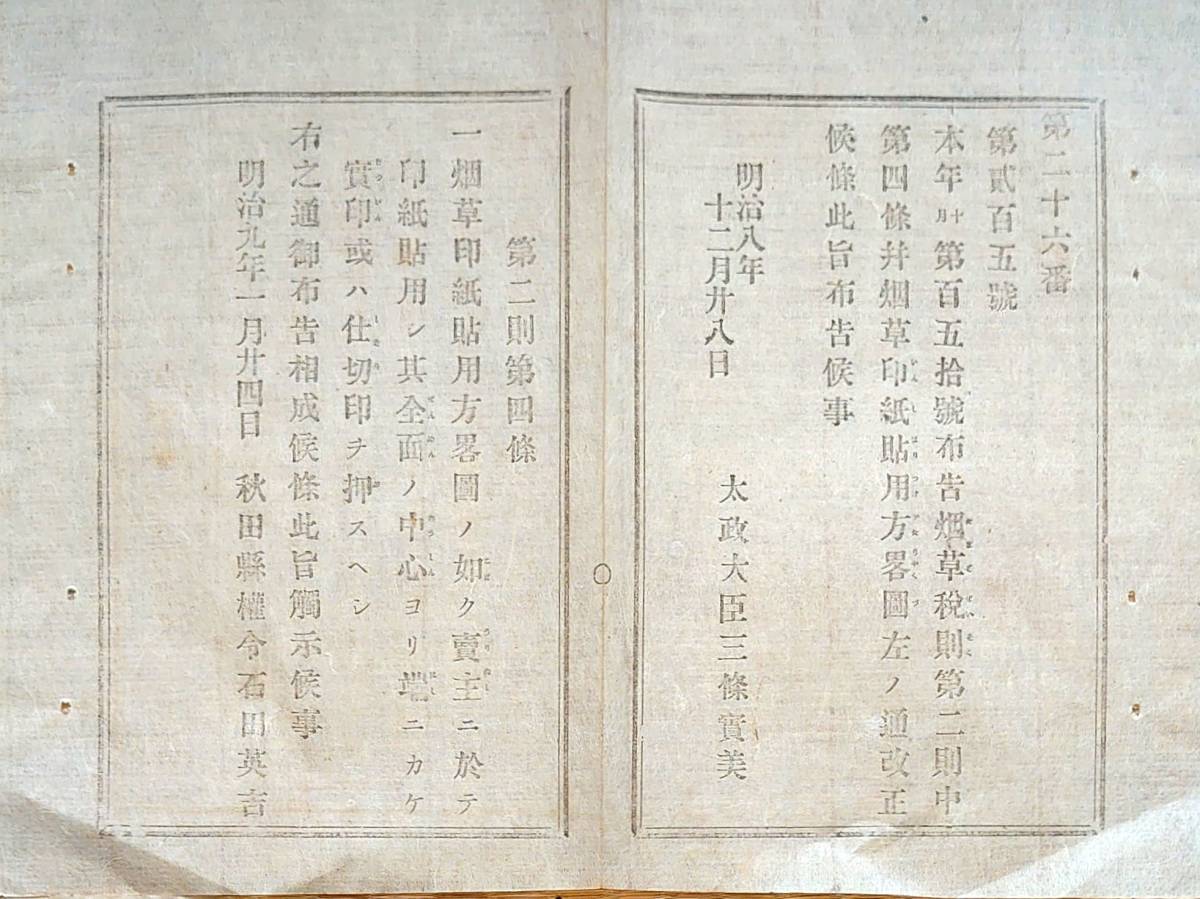 第二十六番
第貳百五號
本年十月第百五拾號布告烟草税則第二則中
第四條并烟草印紙貼用方畧圖左ノ通改正
候條此旨布告候事
明治八年
十二月廿八日
太政大臣三條實美
第二則第四條
一烟草印紙貼用方畧圖ノ如ク賣主ニ於テ
印紙貼用シ其全面ノ中心ヨリ端ニカケ
實印或ハ仕切印ヲ押スヘシ
右之通御布告相成候條此旨觸示候事
明治九年一月廿四日 秋田縣權令石田英吉